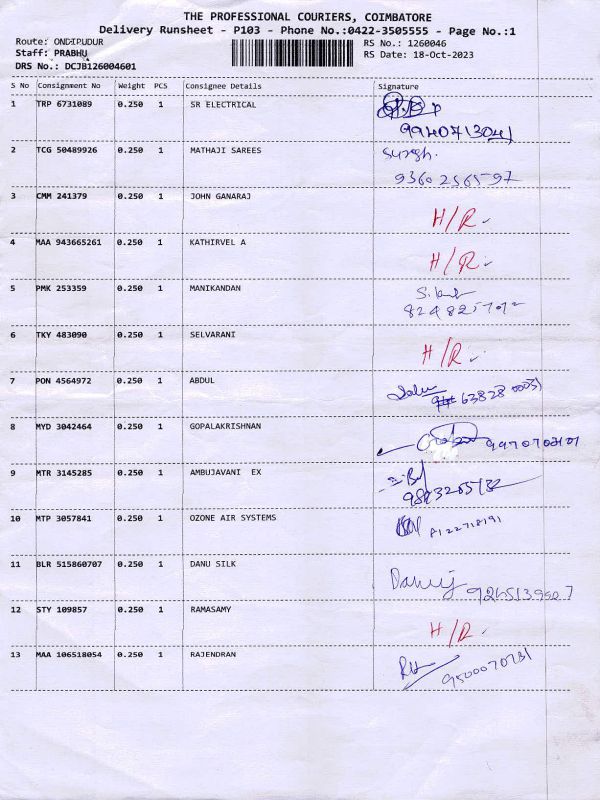 THE PROFESSIONAL COURIERS, COIMBATORE
Delivery Runsheet - P103 - Phone No.:0422-3505555 - Page No.:1
Route: ONDIPUDUR RS No.: 1260046
Staff: PRABHU RS Date: 18-Oct-2023
DRS No.: DCJB126004601
S No Consignment No Weight PCS Consignee Details Signature
1 TRP 6731089 0.250 1 SR ELECTRICAL
9940713041
2 TCG 50489926 0.250 1 MATHAJI SAREES
9360256597
3 CMM 241379 0.250 1 JOHN GANARAJ
H/R
4 MAA 943665261 0.250 1 KATHIRVEL A
H/R
5 PMK 253359 0.250 1 MANIKANDAN
6 TKY 483090 0.250 1 SELVARANI
H/R
7 PON 4564972 0.250 1 ABDUL
63828 00031
8 MYD 3042464 0.250 1 GOPALAKRISHNAN
9 MTR 3145285 0.250 1 AMBUJAVANI EX
10 MTP 3057841 0.250 1 OZONE AIR SYSTEMS
11 BLR 515860707 0.250 1 DANU SILK
12 STY 109857 0.250 1 RAMASAMY
H/R
13 MAA 106518054 0.250 1 RAJENDRAN
9500070731